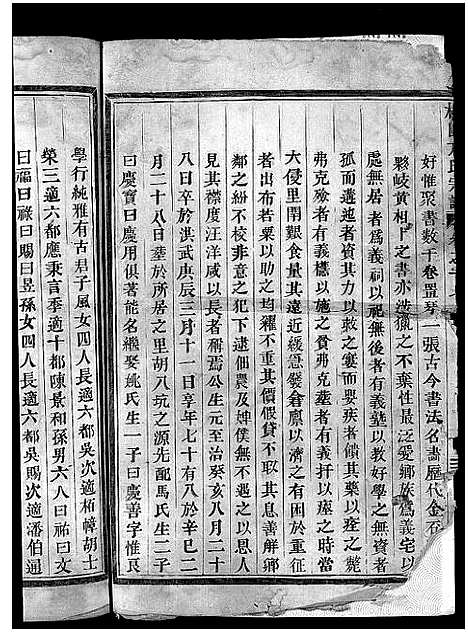 好惟聚書數千卷置琴一張古今書法名畫歷代金石
夥岐黃相卜之書亦涉獵之不棄性最泛愛鄉族爲義宅以
處無居者爲義祠以祀無後者有義塾以教好學之無資
孤而遘迍者資其力以救之窶人疾者儲其藥以痊之斃
弗克殮者有義櫘以施之貧弗克塟者有義扦以痤之時當
大侵里閈艱食量其遠近緩急發倉廪以濟之而於重征
者出布若粟以均之糴不重其價假貸不取其息善解鄉
鄰之紛不校非意之犯下逮佃農及婢僕無不遇之以恩人
見其襟度汪洋咸以長者稱焉公生元至治癸亥八月二十
八日卒於洪武庚辰三月十一日享年七十有八於辛巳二
月二十八日塟於所居之里胡八坑之源先配馬氏生二子
曰慶賓曰慶用俱有著能名繼娶姚氏生一子曰慶善字惟良
學行純雅有古君子風女四人長適六都吳次適柘幛胡士
榮三適六都應秉言季適十都陳景和孫男六人曰祐曰文
曰福曰祿曰賜曰昱孫女四人長適六都吳賜次適潘伯通